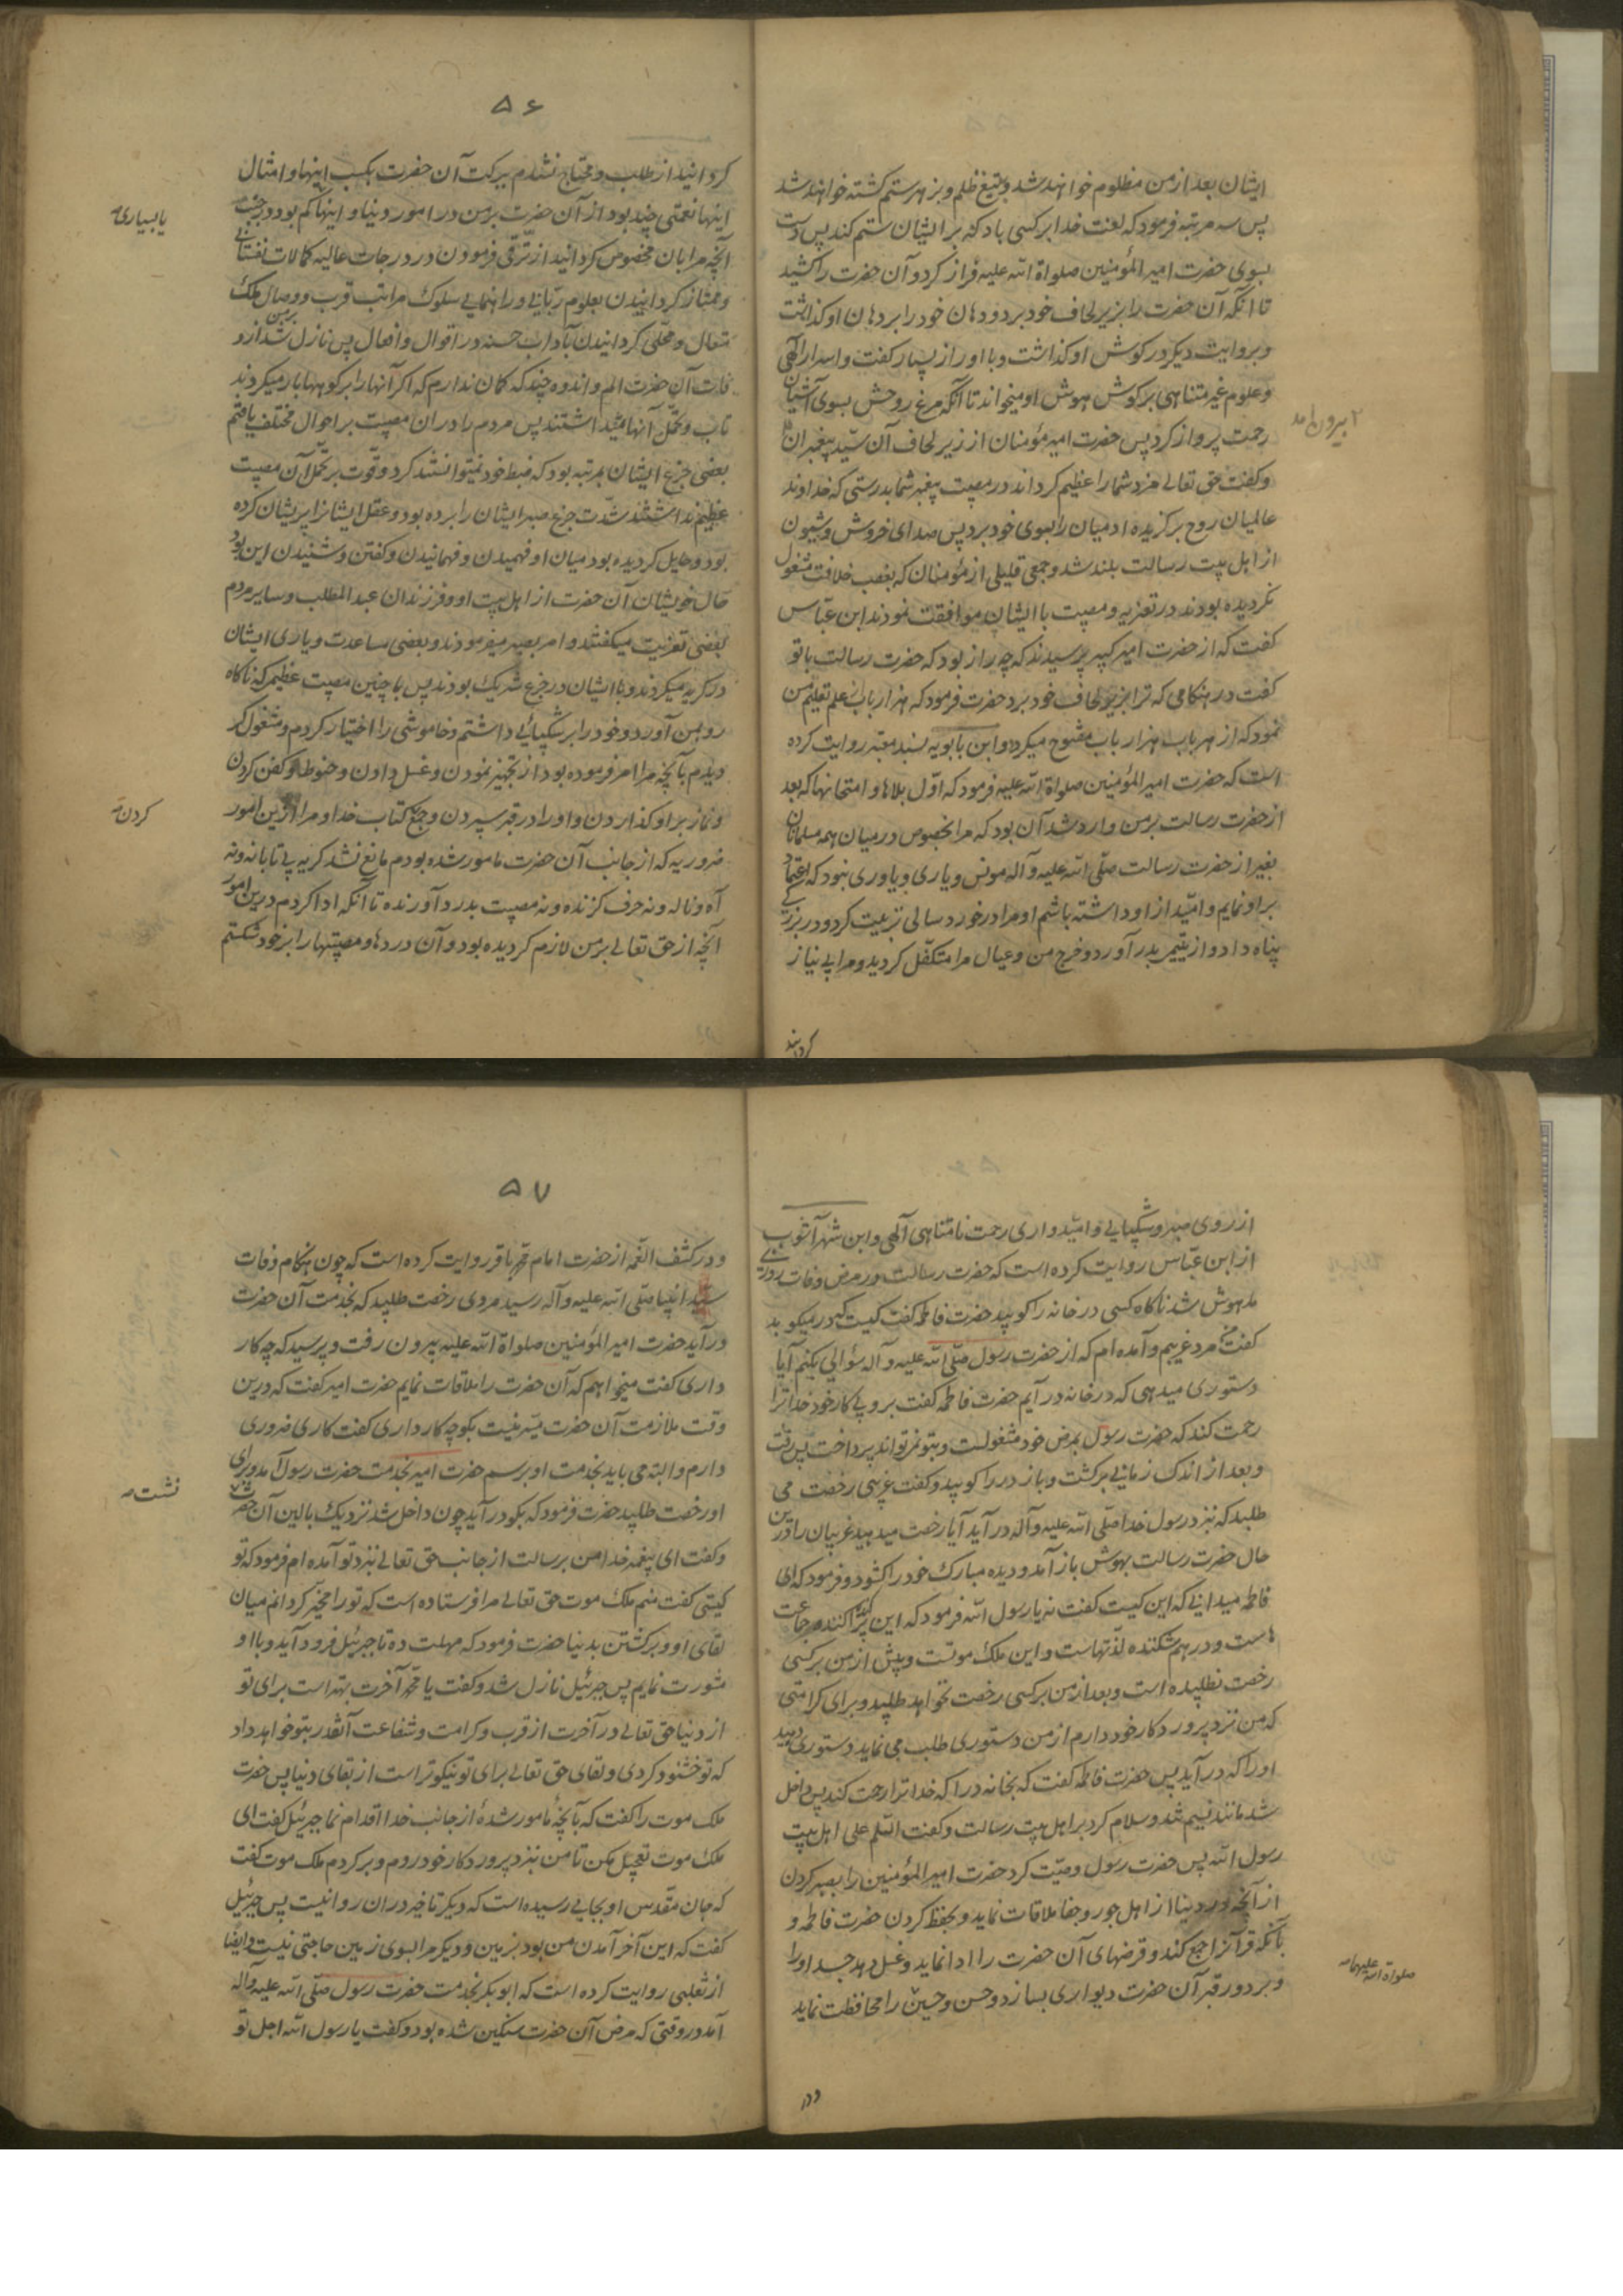 ایشان بعد از من مظلوم خواهند شد و بتیغ ظلم و بزهر ستم کشته خواهند شد
پس سه مرتبه فرمود که لعنت خدا بر کسی باد که بر ایشان ستم کند پس دست
بسوی حضرت امیر المؤمنین صلواة الله علیه فراز کرد و آن حضرت را کشید
تا آنکه آن حضرت را بزیر لحاف خود برد و دهان خود را بر دهان او گذاشت
و بروایت دیگر در گوش او گذاشت و با او راز بسیار گفت و اسرار الهی
و علوم غیر متناهی بر گوش هوش او میخواند تا آنکه مرغ روحش بسوی آشیان
رحمت پرواز کرد پس حضرت امیر مؤمنان از زیر لحاف آن سید پیغمبران
۲ بیرون امد
و گفت حق تعالی مزد شما را عظیم گرداند در مصیبت پیغمبر شما بدرستی که خداوند
عالمیان روح برگزیده ادمیان را بسوی خود برد پس صدای خروش و شیون
از اهل بیت رسالت بلند شد و جمعی قلیلی از مؤمنان که بغصب خلافت مشغول
نگردیده بودند در تعزیه و مصیبت با ایشان موافقت نمودند ابن عباس
گفت که از حضرت امیر کبیر پرسیدند که چه راز بود که حضرت رسالت با تو
گفت در هنگامی که ترا بزیر لحاف خود برد حضرت فرمود که هزار باب از علم تعلیم من
نمود که از هر باب هزار باب مفتوح میگردد و ابن بابویه بسند معتبر روایت کرده
است که حضرت امیر المؤمنین صلواة الله علیه فرمود که اول بلاها و امتحانها که بعد
از حضرت رسالت بر من وارد شد آن بود که مرا بخصوص در میان همه مسلمانان
بغیر از حضرت رسالت صلی الله علیه و آله مونس و یاری و یاوری نبود که اعتماد
بر او نمایم و امید از او داشته باشم او مرا در خورد سالی تربیت کرد و در بزرگی
پناه داد و از یتیمی بدر آورد و خرج من و عیال مرا متکفل گردید و مرا بی نیاز
گردانید
۵۶
گردانید از طلب و محتاج نشدم ببرکت آن حضرت بکسب اینها و امثال
اینها نعمتی چند بود از آن حضرت بر من در امور دنیا و اینها کم بود در جنب
یا بسیاری
آنچه مرا بان مخصوص گردانید از ترقی فرمودن در درجات عالیه کمالات نفسانی
و ممتاز گردانیدن بعلوم ربانی و راهنمایی سلوک مراتب قرب و وصال ملک
متعال و محلی گردانیدن بآداب حسنه در اقوال و افعال پس نازل شد بر من از و
فات آن حضرت الم و اندوه چند که گمان ندارم که اگر آنها را بر کوهها بار میکردند
تاب و تحمل آنها میداشتند پس مردم را در ان مصیبت بر احوال مختلف یافتم
بعضی جزع ایشان بمرتبه بود که ضبط خود نمیتوانستند کرد و قوت بر تحمل آن مصیبت
عظیم نداشتند شدت جزع صبر ایشان را برده بود و عقل ایشانرا پریشان کرده
بود و حایل گردیده بود میان او فهمیدن و فهمانیدن و گفتن و شنیدن این بود
حال خویشان آن حضرت از اهل بیت او و فرزندان عبد المطلب و سایر مردم
بعضی تعزیت میگفتند و امر بصبر میفرمودند و بعضی مساعدت و یاری ایشان
در گریه میکردند و با ایشان در جزع شریک بودند پس با چنین مصیبت عظیم که ناگاه
رو بمن آورد و خود را بر شکیبائی داشتم و خاموشی را اختیار کردم و مشغول گر
دیدم بآنچه مرا امر فرموده بود از تجهیز نمودن و غسل دادن و حنوط و کفن کردن
و نماز بر او گذاردن و او را در قبر سپردن و جمع کتاب خدا و مرا ازین امور
کردن
ضروریه که از جانب آن حضرت مامور شده بودم مانع نشد گریه بی تابانه و نه
آه و ناله و نه حرف گزنده و نه مصیبت بدرد آورنده تا آنکه ادا کردم درین امور
آنچه از حق تعالی بر من لازم گردیده بود و آن دردها و مصیبتها را بر خود شکستم
از روی صبر و شکیبایی و امیدواری رحمت نامتناهی آلهی و ابن شهر آشوب
از ابن عباس روایت کرده است که حضرت رسالت در مرض وفات روزی
مدهوش شد ناگاه کسی در خانه را کوبید حضرت فاطمه گفت کیست که در میکوبد
گفت من مرد غریبم و آمده ام که از حضرت رسول صلی الله علیه و آله سؤالی بکنم آیا
دستوری میدهی که در خانه در آیم حضرت فاطمه گفت برو پی کار خود خدا ترا
رحمت کند که حضرت رسول بمرض خود مشغولست و بتو نمیتواند پرداخت پس رفت
و بعد از اندک زمانی برگشت و باز در را کوبید و گفت غریبی رخصت می
طلبد که نزد رسول خدا صلی الله علیه و آله در آید آیا رخصت میدهید غریبان را درین
حال حضرت رسالت بهوش باز آمد و دیده مبارک خود را گشود و فرمود که ای
فاطمه میدانی که این کیست گفت نه یا رسول الله فرمود که این پراکنده کننده جماعت
هاست و در هم شکننده لذتهاست و این ملک موتست و پیش از من بر کسی
رخصت نطلبیده است و بعد از من بر کسی رخصت نخواهد طلبید و برای کرامتی
که من نزد پروردگار خود دارم از من دستوری طلب می نماید دستوری دهید
او را که در آید پس حضرت فاطمه گفت که بخانه در ا که خدا ترا رحمت کند پس داخل
شد مانند نسیم تند و سلام کرد بر اهل بیت رسالت و گفت السلم علی اهل بیت
رسول الله پس حضرت رسول وصیت کرد حضرت امیر المؤمنین را بصبر کردن
از آنچه در دنیا از اهل جور و جفا ملاقات نماید و بحفظ کردن حضرت فاطمه و
بآنکه قرآنرا جمع کند و قرضهای آن حضرت را ادا نماید و غسل دهد جسد او را
و بر دور قبر آن حضرت دیواری بسازد و حسن و حسین را محافظت نماید
صلواة الله علیهما
۵۷
و در کشف الغمه از حضرت امام محمد باقر روایت کرده است که چون هنگام وفات
سید انبیا صلی الله علیه و آله رسید مردی رخصت طلبید که بخدمت آن حضرت
در آید حضرت امیر المؤمنین صلواة الله علیه بیرون رفت و پرسید که چه کار
داری گفت میخواهم که آن حضرت را ملاقات نمایم حضرت امیر گفت که درین
وقت ملازمت آن حضرت میسر نیست بگو چه کار داری گفت کاری ضروری
دارم و البته می باید بخدمت او برسم حضرت امیر بخدمت حضرت رسول آمد و برای
او رخصت طلبید حضرت فرمود که بگو در آید چون داخل شد نزدیک بالین آن حضرت
نشست
و گفت ای پیغمبر خدا من برسالت از جانب حق تعالی نزد تو آمده ام فرمود که تو
کیستی گفت منم ملک موت حق تعالی مرا فرستاده است که تو را مخیر گردانم میان
لقای او و برگشتن بدنیا حضرت فرمود که مهلت ده تا جبرئیل فرود آید و با او
مشورت نمایم پس جبرئیل نازل شد و گفت یا محمد آخرت بهتر است برای تو
از دنیا حق تعالی در آخرت از قرب و کرامت و شفاعت آنقدر بتو خواهد داد
که تو خشنود گردی و لقای حق تعالی برای تو نیکوتر است از بقای دنیا پس حضرت
ملک موت را گفت که بآنچه مامور شدهٔ از جانب خدا اقدام نما جبرئیل گفت ای
ملک موت تعجیل مکن تا من نزد پروردگار خود روم و برگردم ملک موت گفت
که جان مقدس او بجایی رسیده است که دیگر تاخیر در ان روا نیست پس جبرئیل
گفت که این آخر آمدن من بود بزمین و دیگر مرا بسوی زمین حاجتی نیست و ایضا
از ثعلبی روایت کرده است که ابو بکر بخدمت حضرت رسول صلی الله علیه و آله
آمد در وقتی که مرض آن حضرت سنگین شده بود و گفت یا رسول الله اجل تو